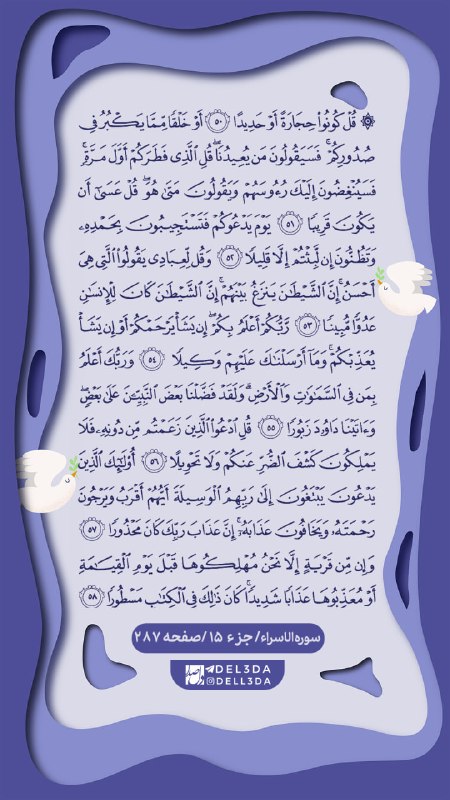 ۞ قُلْ كُونُوا۟ حِجَارَةً أَوْ حَدِيدًا ﴿۵۰﴾ أَوْ خَلْقًا مِّمَّا يَكْبُرُ فِى
صُدُورِكُمْ ۚ فَسَيَقُولُونَ مَن يُعِيدُنَا ۖ قُلِ ٱلَّذِى فَطَرَكُمْ أَوَّلَ مَرَّةٍ ۚ
فَسَيُنْغِضُونَ إِلَيْكَ رُءُوسَهُمْ وَيَقُولُونَ مَتَىٰ هُوَ ۖ قُلْ عَسَىٰٓ أَن
يَكُونَ قَرِيبًا ﴿۵۱﴾ يَوْمَ يَدْعُوكُمْ فَتَسْتَجِيبُونَ بِحَمْدِهِۦ
وَتَظُنُّونَ إِن لَّبِثْتُمْ إِلَّا قَلِيلًا ﴿۵۲﴾ وَقُل لِّعِبَادِى يَقُولُوا۟ ٱلَّتِى هِىَ
أَحْسَنُ ۚ إِنَّ ٱلشَّيْطَـٰنَ يَنزَغُ بَيْنَهُمْ ۚ إِنَّ ٱلشَّيْطَـٰنَ كَانَ لِلْإِنسَـٰنِ
عَدُوًّا مُّبِينًا ﴿۵۳﴾ رَّبُّكُمْ أَعْلَمُ بِكُمْ ۖ إِن يَشَأْ يَرْحَمْكُمْ أَوْ إِن يَشَأْ
يُعَذِّبْكُمْ ۚ وَمَآ أَرْسَلْنَـٰكَ عَلَيْهِمْ وَكِيلًا ﴿۵۴﴾ وَرَبُّكَ أَعْلَمُ
بِمَن فِى ٱلسَّمَـٰوَٰتِ وَٱلْأَرْضِ ۗ وَلَقَدْ فَضَّلْنَا بَعْضَ ٱلنَّبِيِّـۧنَ عَلَىٰ بَعْضٍ ۖ
وَءَاتَيْنَا دَاوُۥدَ زَبُورًا ﴿۵۵﴾ قُلِ ٱدْعُوا۟ ٱلَّذِينَ زَعَمْتُم مِّن دُونِهِۦ فَلَا
يَمْلِكُونَ كَشْفَ ٱلضُّرِّ عَنكُمْ وَلَا تَحْوِيلًا ﴿۵۶﴾ أُو۟لَـٰٓئِكَ ٱلَّذِينَ
يَدْعُونَ يَبْتَغُونَ إِلَىٰ رَبِّهِمُ ٱلْوَسِيلَةَ أَيُّهُمْ أَقْرَبُ وَيَرْجُونَ
رَحْمَتَهُۥ وَيَخَافُونَ عَذَابَهُۥٓ ۚ إِنَّ عَذَابَ رَبِّكَ كَانَ مَحْذُورًا ﴿۵۷﴾
وَإِن مِّن قَرْيَةٍ إِلَّا نَحْنُ مُهْلِكُوهَا قَبْلَ يَوْمِ ٱلْقِيَـٰمَةِ
أَوْ مُعَذِّبُوهَا عَذَابًا شَدِيدًا ۚ كَانَ ذَٰلِكَ فِى ٱلْكِتَـٰبِ مَسْطُورًا ﴿۵۸﴾
سوره‌الاسراء/ جزء ۱۵/صفحه ۲۸۷
DEL3DA
DELL3DA